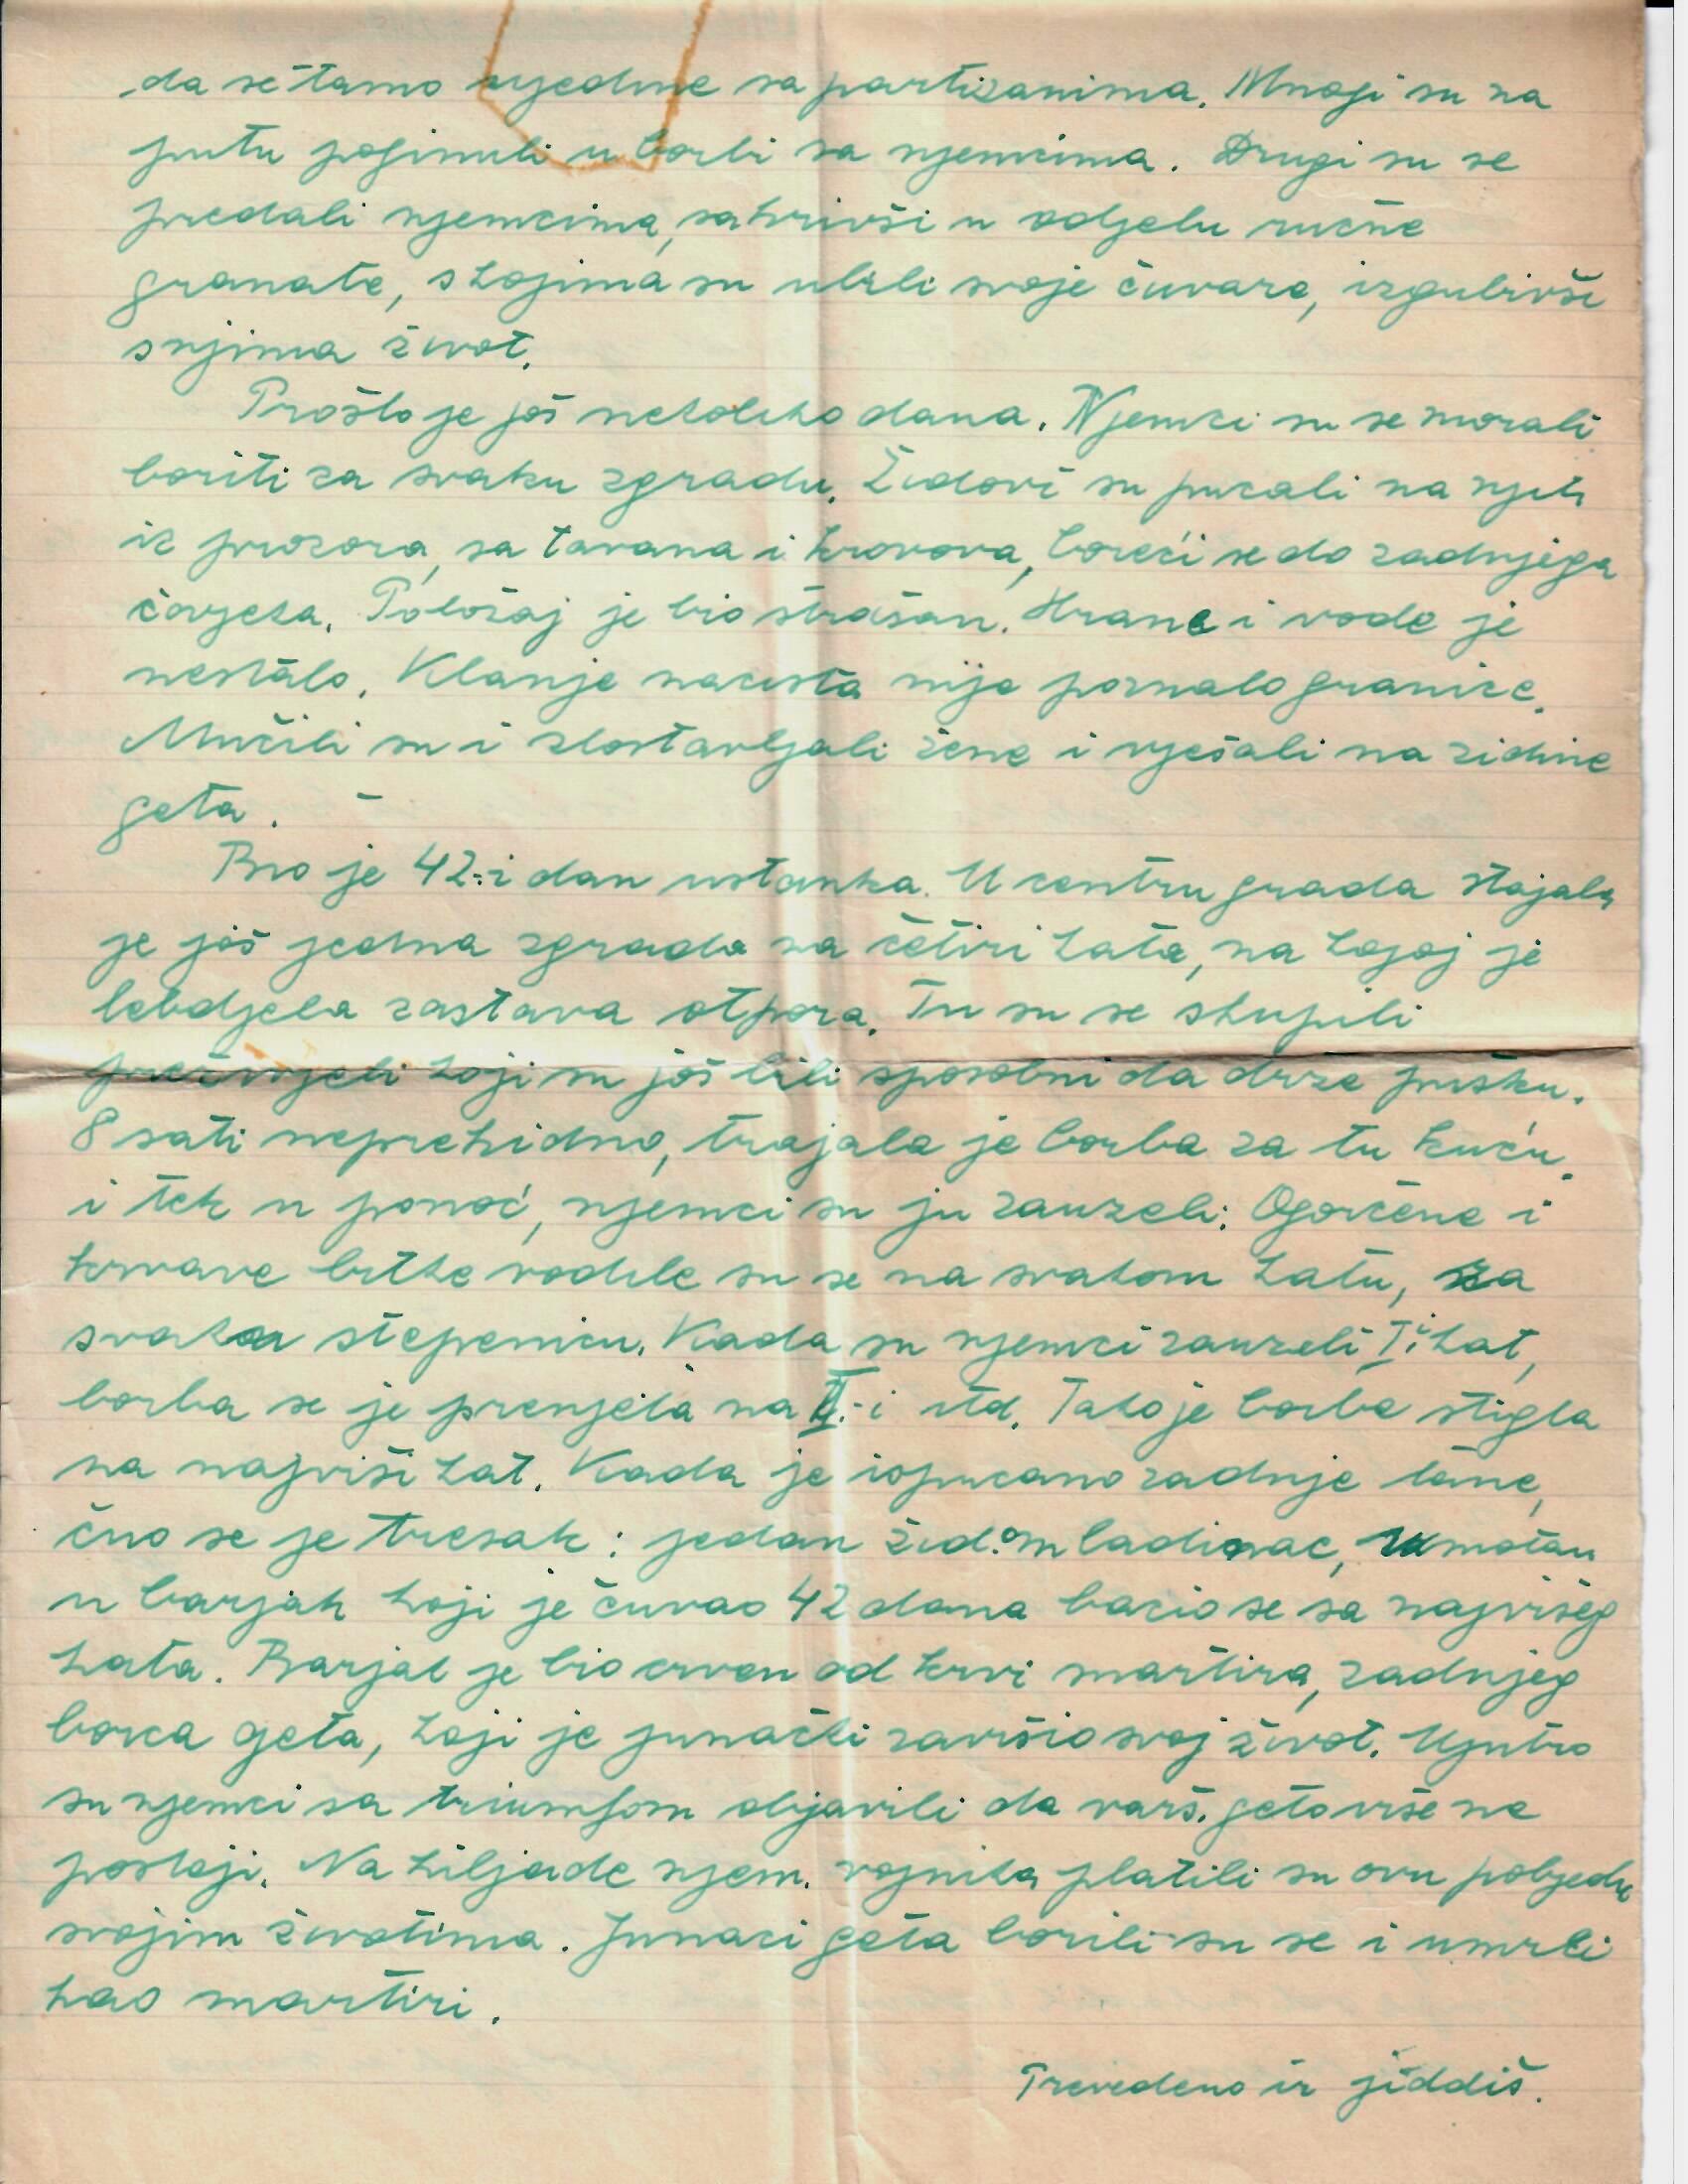 da se tamo ujedine sa partizanima. Mnogi su na
putu poginuli u borbi sa njemcima. Drugi su se
predali njemcima, sakrivši u odjelu ručne
granate, s kojima su ubili svoje čuvare, izgubivši
s njima život.
Prošlo je još nekoliko dana. Njemci su se morali
boriti za svaku zgradu. Židovi su pucali na njih
iz prozora, sa tavana i krovova, boreći se do zadnjega
čovjeka. Položaj je bio strašan. Hrane i vode je
nestalo. Klanje nacista nije poznalo granice.
Mučili su i zlostavljali žene i vješali na zidine
geta.
Bio je 42.-i dan ustanka. U centru grada stajala
je još jedna zgrada na četiri kata, na kojoj je
lebdjela zastava otpora. Tu su se skupili
preživjeli koji su još bili sposobni da drže pušku.
8 sati neprekidno, trajala je borba za tu kuću,
i tek u ponoć, njemci su ju zauzeli. Ogorčene i
krvave bitke vodile su se na svakom katu, za
svaku stepenicu. Kada su njemci zauzeli I.i kat,
borba se je prenjela na II.-i itd. Tako je borba stigla
na najviši kat. Kada je ispucano zadnje tane,
čuo se je tresak: jedan žid. mladinac, umotan
u barjak koji je čuvao 42 dana bacio se sa najvišeg
kata. Barjak je bio crven od krvi martira, zadnjeg
borca geta, koji je junački završio svoj život. Ujutro
su njemci sa triumfom objavili da varš. geto više ne
postoji. Na hiljade njem. vojnika platili su ovu pobjedu
svojim životima. Junaci geta borili su se i umrli
kao martiri.
Prevedeno iz jiddiš.